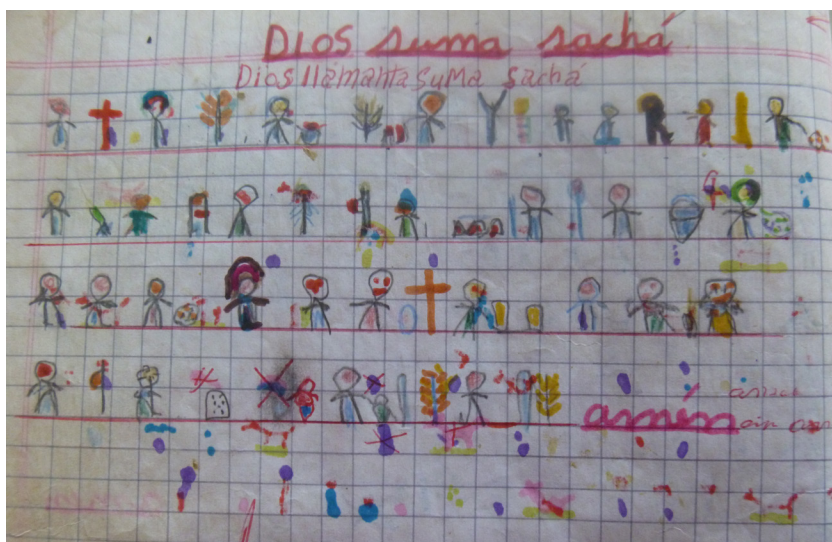 DIOS suma sachá
Dios llámanta suma sachá
amén